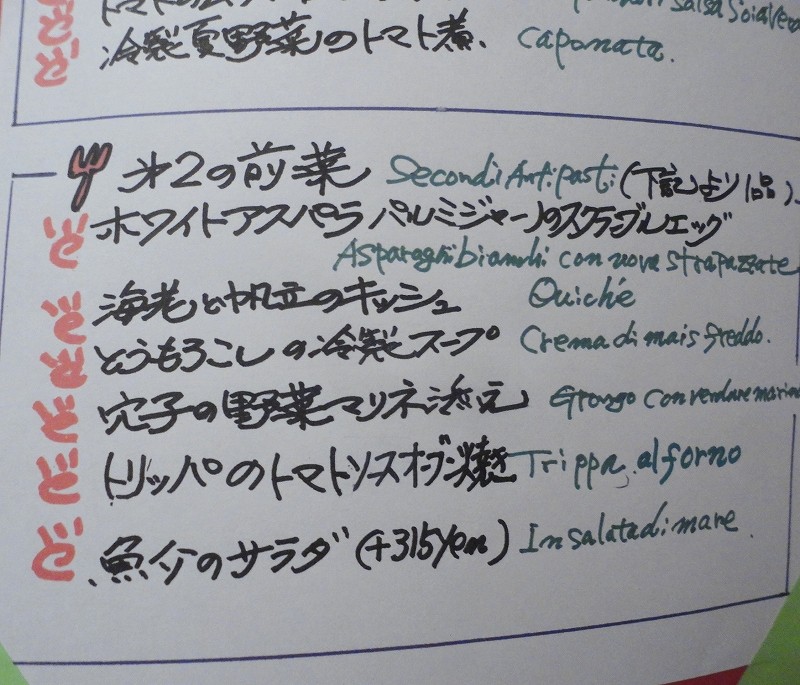 冷製夏野菜のトマト煮、 caponata.
第2の前菜 Secondi Antipasti (下記より1品)、
ホワイトアスパラ パルミジャーノのスクランブルエッグ
Asparaghi bianchi con uova strapazzate
海老と帆立のキッシュ Quiché
とうもろこしの冷製スープ Crema di mais freddo.
穴子の野菜マリネ添え Grongo con verdure marina
トリッパのトマトソースオーブン焼き Trippa al forno
魚介のサラダ (+315yen) Insalata di mare.